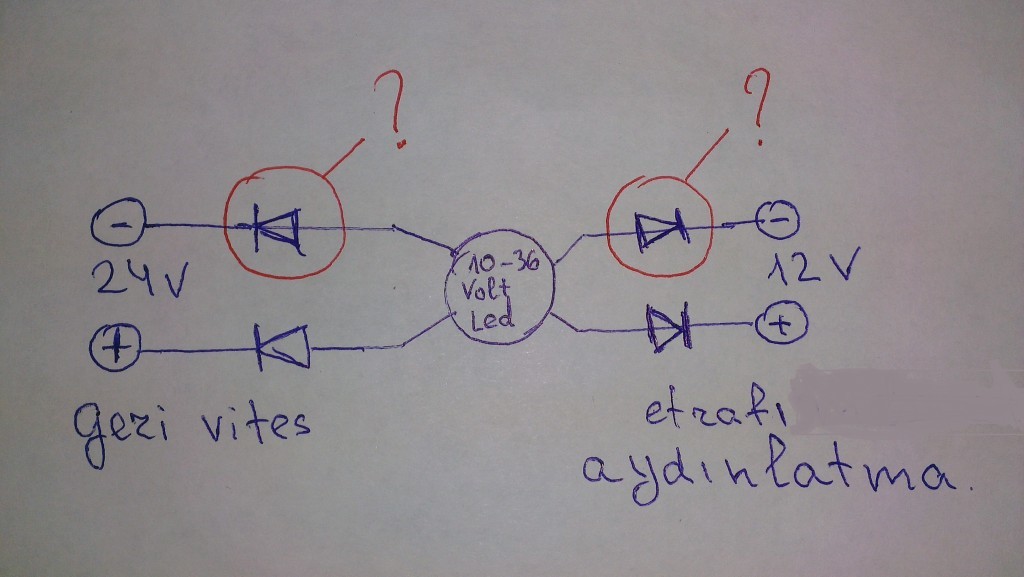 ? ?
- -
24V 12V
10-36
Volt
Led
+ +
geri vites
etrafı
aydınlatma.